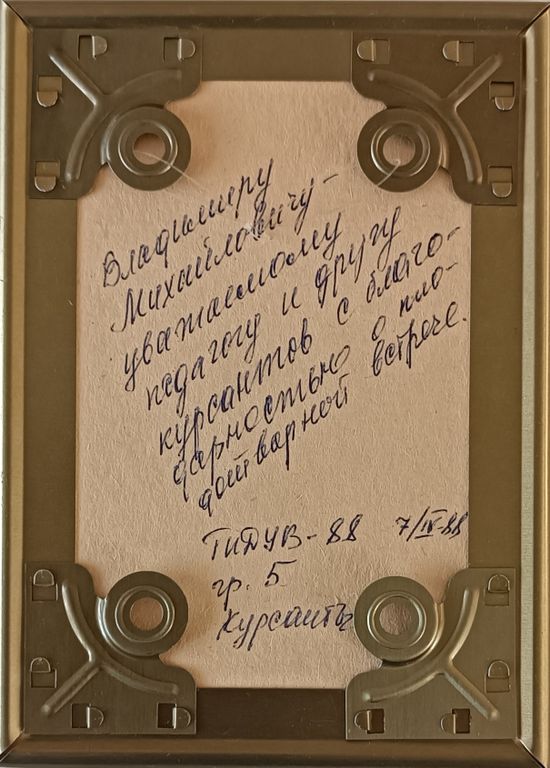 Владимиру
Михайловичу -
уважаемому
педагогу и другу
курсантов с благо-
дарностью о пло-
дотварной встрече.
ТиДУВ-88 7/IV-88
гр. 5
Курсанты